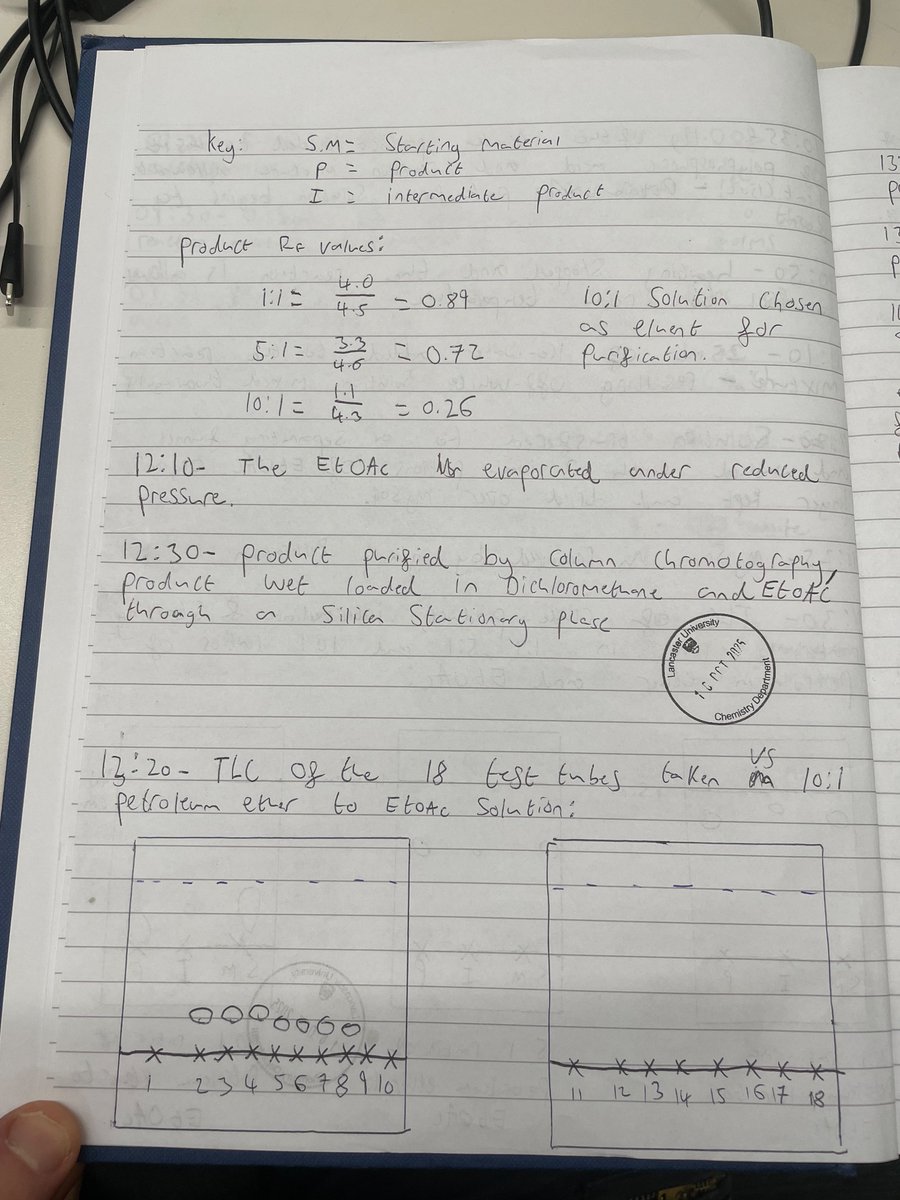 Key: S.M = Starting material
P = product
I = intermediate product
product RF values:
1:1 = 4.0/4.5 = 0.89
5:1 = 3.3/4.6 = 0.72
10:1 = 1.1/4.3 = 0.26
10:1 Solution Chosen
as eluent for
purification.
12:10- The EtOAc evaporated under reduced
pressure.
12:30- product purified by column chromotography,
product wet loaded in Dichloromethane and EtOAc
through a Silica Stationary phase
Lancaster University
OCT 2025
Chemistry Department
13:20- TLC of the 18 test tubes taken vs 10:1
petroleum ether to EtOAc Solution:
1 2 3 4 5 6 7 8 9 10
11 12 13 14 15 16 17 18